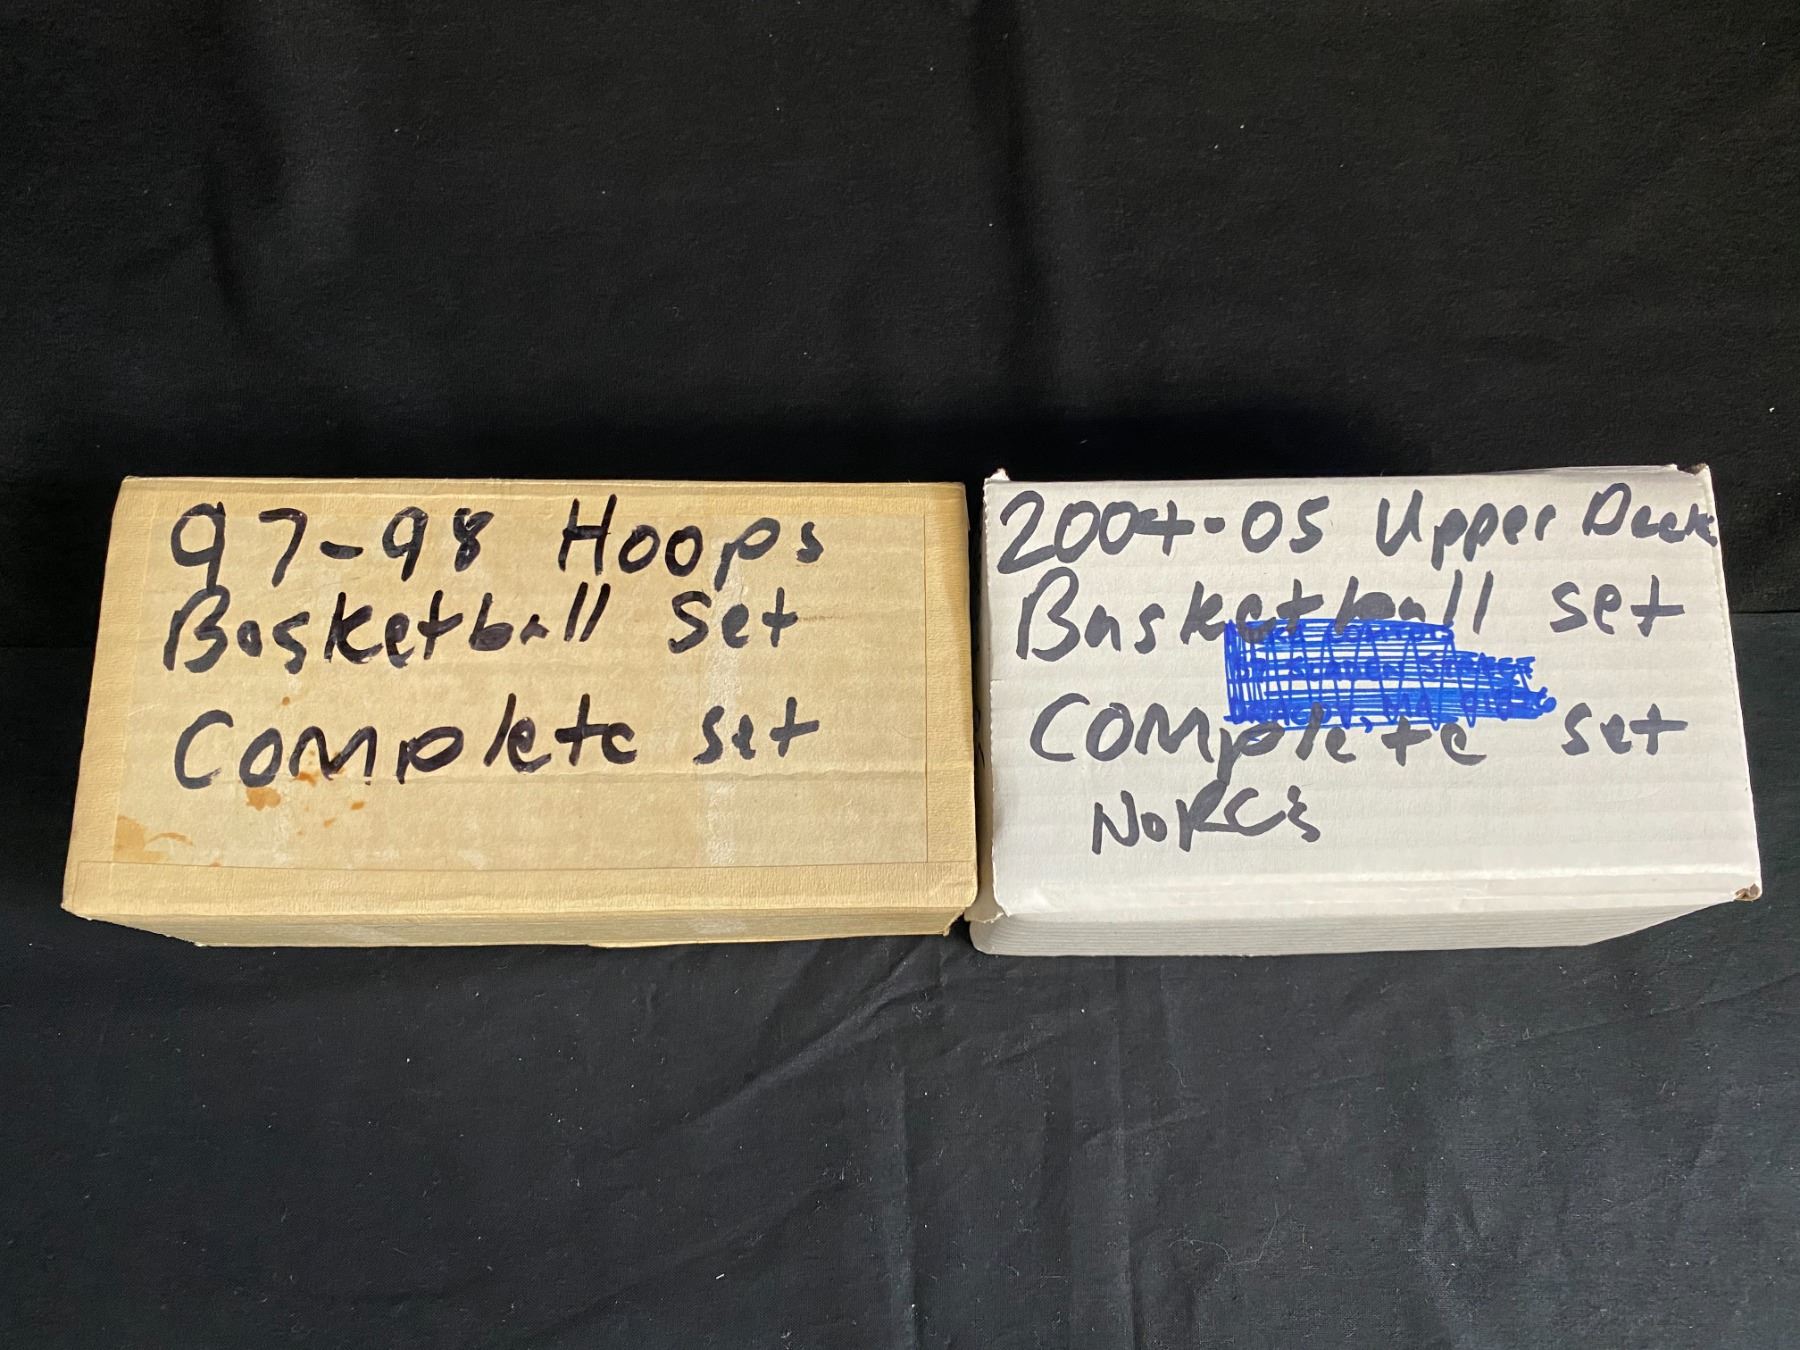 97-98 Hoops
Basketball set
Complete set
2004-05 Upper Deck
Basketball set
Complete set
NoRCs